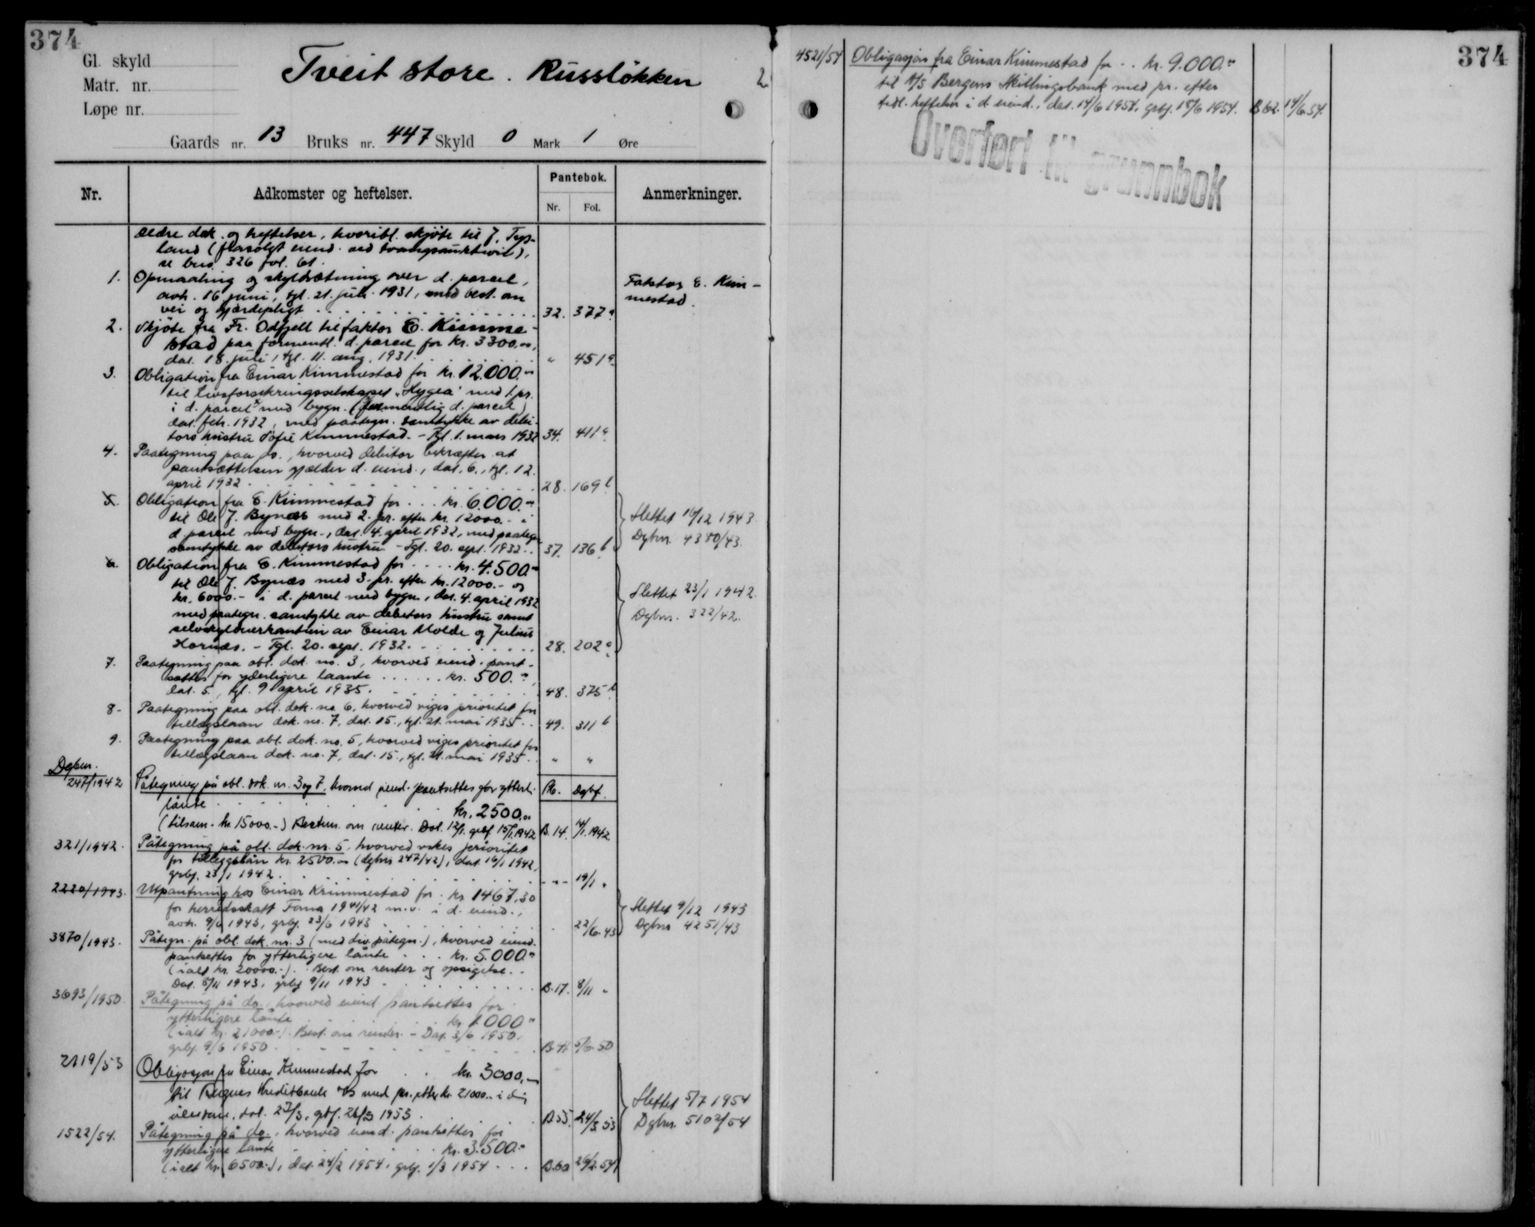 374
Gl. skyld
Matr. nr.
Løpe nr.
Tveit store. Russløkken
2
Gaards nr. 13 Bruks nr. 447 Skyld 0 Mark 1 Øre
Nr. Adkomster og heftelser. Pantebok. Anmerkninger.
Nr. Fol.
Ældre dok. og heftelser, hvoribl. skjøte til J. Tves-
land (frasolgt eiend. ved tvangsauktion),
se bus. 326 fol. 61.
1. Opmaaling og skyldsætning over d. parcel,
avh. 16 juni, tgl. 21. juli 1931, med best. om
vei og gjærdepligt 32. 377 a
Faktor E. Kim-
mestad.
2. Skjøte fra Fr. Odfjell til faktor E. Kimme-
stad paa formentl. d. parcel for kr. 3300.00,
dat. 18. juli, tgl. 11. aug. 1931 " 451 a
3. Obligation fra Einar Kimmestad for kr. 12.000.00
til livsforsikringsselskapet "Hygea" med 1. pr.
i d. parcel med bygn. (formentlig d. parcel)
dat. febr. 1932, med paategn. samtykke av debi-
tors hustru Sofie Kimmestad. - Tgl. 1. mars 1932 34. 411 a
4. Paategning paa do., hvorved debitor bekræfter at
pantsættelsen gjælder d. eiend., dat. 6., tgl. 12.
april 1932 28. 169 b
5. Obligation fra E. Kimmestad for ... kr. 6.000.00
til Ole J. Bynæs med 2. pr. efter kr. 12000.- i
d. parcel med bygn., dat. 4. april 1932, med paategn.
samtykke av debitors hustru - Tgl. 20. sept. 1932 .. 37. 136 b
Slettet 16/12 1943
Dgbnr. 4380/43.
6. Obligation fra E. Kimmestad for .... kr. 4.500.00
til Ole J. Bynæs med 3. pr. efter kr. 12000.- og
kr. 6000.- i d. parcel med bygn., dat. 4. april 1932
med paategn. samtykke av debitors hustru samt
selvskyldnerkaution av Einar Molde og Julius
Hornæs. - Tgl. 20. sept. 1932. 28. 202 a
Slettet 23/1 1942.
Dgbnr. 322/42.
7. Paategning paa obl. dok. no. 3, hvorved eiend. pant-
sættes for yderligere laante ...... kr. 500.00,
dat. 5., tgl. 9. april 1935. 48. 375 b
8. Paategning paa obl. dok. no. 6, hvorved viges prioritet for
tillægslaan dok. no. 7, dat. 15., tgl. 21. mai 1935 .. 49. 311 b
9. Paategning paa obl. dok. no. 5, hvorved viges prioritet for
tillægslaan dok. no. 7, dat. 15., tgl. 21. mai 1935 .. " "
Dgbnr.
247/1942 Påtegning på obl. dok. nr. 3 og 7, hvorved eiend. pantsettes for ytterli. Pb. Dgbf.
lånte kr. 2500.00
(tilsam. kr. 15000.-) Bestem. om renter. Dat. 12/1. grbf. 15/1. 1942 B.14. 14/1. 1942
321/1942. Påtegning på obl. dok. nr. 5, hvorved vikes prioritet
for tilleggslån kr. 2500.00 (dgbnr 247/42), dat. 16/1 1942,
grbf. 23/1 1942. -"- 19/1 "
2220/1943. Utpantning hos Einar Kimmestad for kr. 1467.30
for herredsskatt Fana 1941/42 m.v. i d. eiend.,
avh. 9/6 1943, grbf. 23/6 1943 22/6.43
Slettet 9/12 1943
Dgbnr. 4251/43
3870/1943. Påtegn. på obl. dok. nr. 3 (med div. påtegn.), hvorved eiend.
pantsettes for ytterligere lånte ... kr. 5.000.00
(ialt kr. 20000.-). Best. om renter og opsigelse ..
Dat. 5/11 1943, grbf. 9/11 1943 B.17. 8/11 "
3693/1950. Påtegning på do., hvorved eiend. pantsettes for
ytterligere lånte kr. 1000.00
(ialt kr. 21000.-). Best. om renter. - Dat. 3/6 1950,
grbf. 9/6 1950
2119/53 Obligasjon fra Einar Kimmestad for .. kr. 3000.-
til Bergens Kreditbank A/S med pr. etter kr. 21000.- i d.
eiendom, dat. 23/3, grbf. 26/3 1953 B.55. 24/3.53
Slettet 5/7 1954
Dgbnr. 5102/54
1522/54. Påtegning på do., hvorved eiend. pantsettes for
ytterligere lånte kr. 3.500.00
(ialt kr. 6500.-), dat. 24/2 1954, grbf. 1/3 1954 ... B.60 26/2.54
374
4521/54 Obligasjon fra Einar Kimmestad for .. kr. 9.000.00
til A/S Bergens Skillingsbank med pr. efter
tidl. heftelser i d. eiend., dat. 14/6 1954, grbf. 18/6 1954. B.62. 14/6.54.
Overført til grunnbok